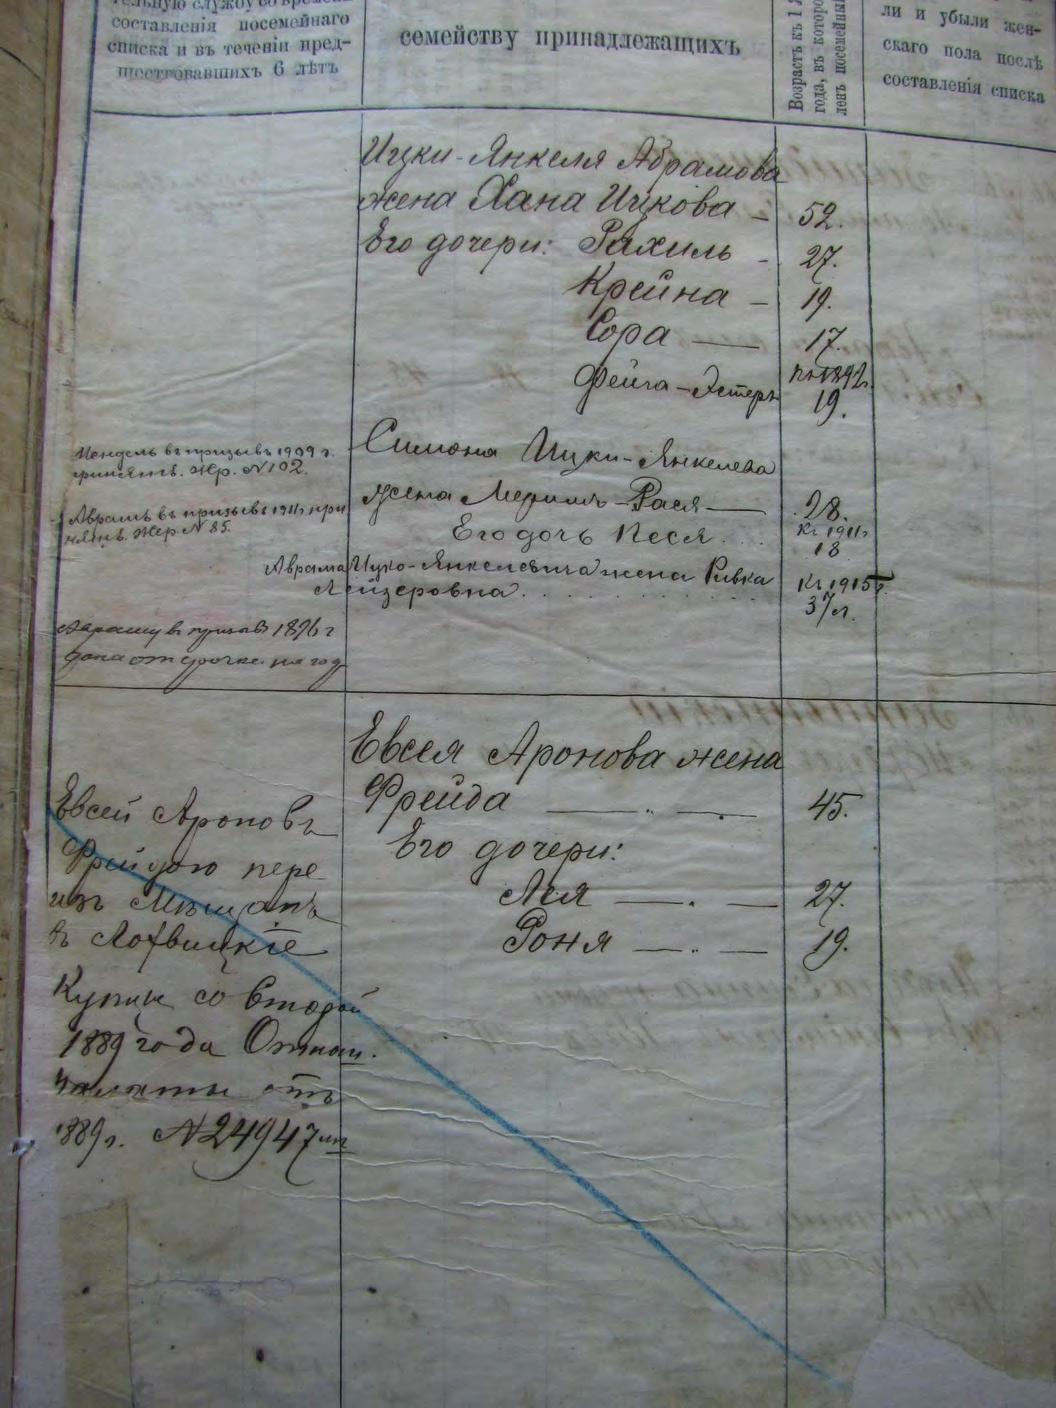 тельную службу во время
составленія посемейнаго
списка и въ теченіи пред-
шествовавшихъ 6 лѣтъ
семейству принадлежащихъ
Возрастъ къ 1
года, въ которо
ленъ посемейный
ли и убыли жен-
скаго пола послѣ
составленія списка
Ицки-Янкеля Абрамова
жена Хана Ицкова — 52.
Его дочери: Рахиль - 27.
Крейна — 19.
Сора — 17.
Фейга-Эстеръ 1892г.
19.
Мендель въ призывъ 1909 г.
принятъ. Жр. N 102.
Симона Ицки-Янкелева
жена Рася — 28.
Абрамъ въ призывъ 1911г. при
нятъ. Жер N 85.
Его дочь Песя . . . Къ 1911г
18
Аврама Ицко-Янкелевича жена Ривка Къ 1915г.
Лейзеровна . . . . . . . . 37л.
въ призывъ 1896 г
дана отсрочка на год
Евсея Аронова жена
Фрейда — 45.
Его дочери:
Лея — 27.
Роня — 19.
Евсей Ароновъ
Фрейдою пере
изъ Мѣщанъ
въ Лохвицкіе
Купцы со второй
1889 года
Палаты отъ
1889г. N 24947